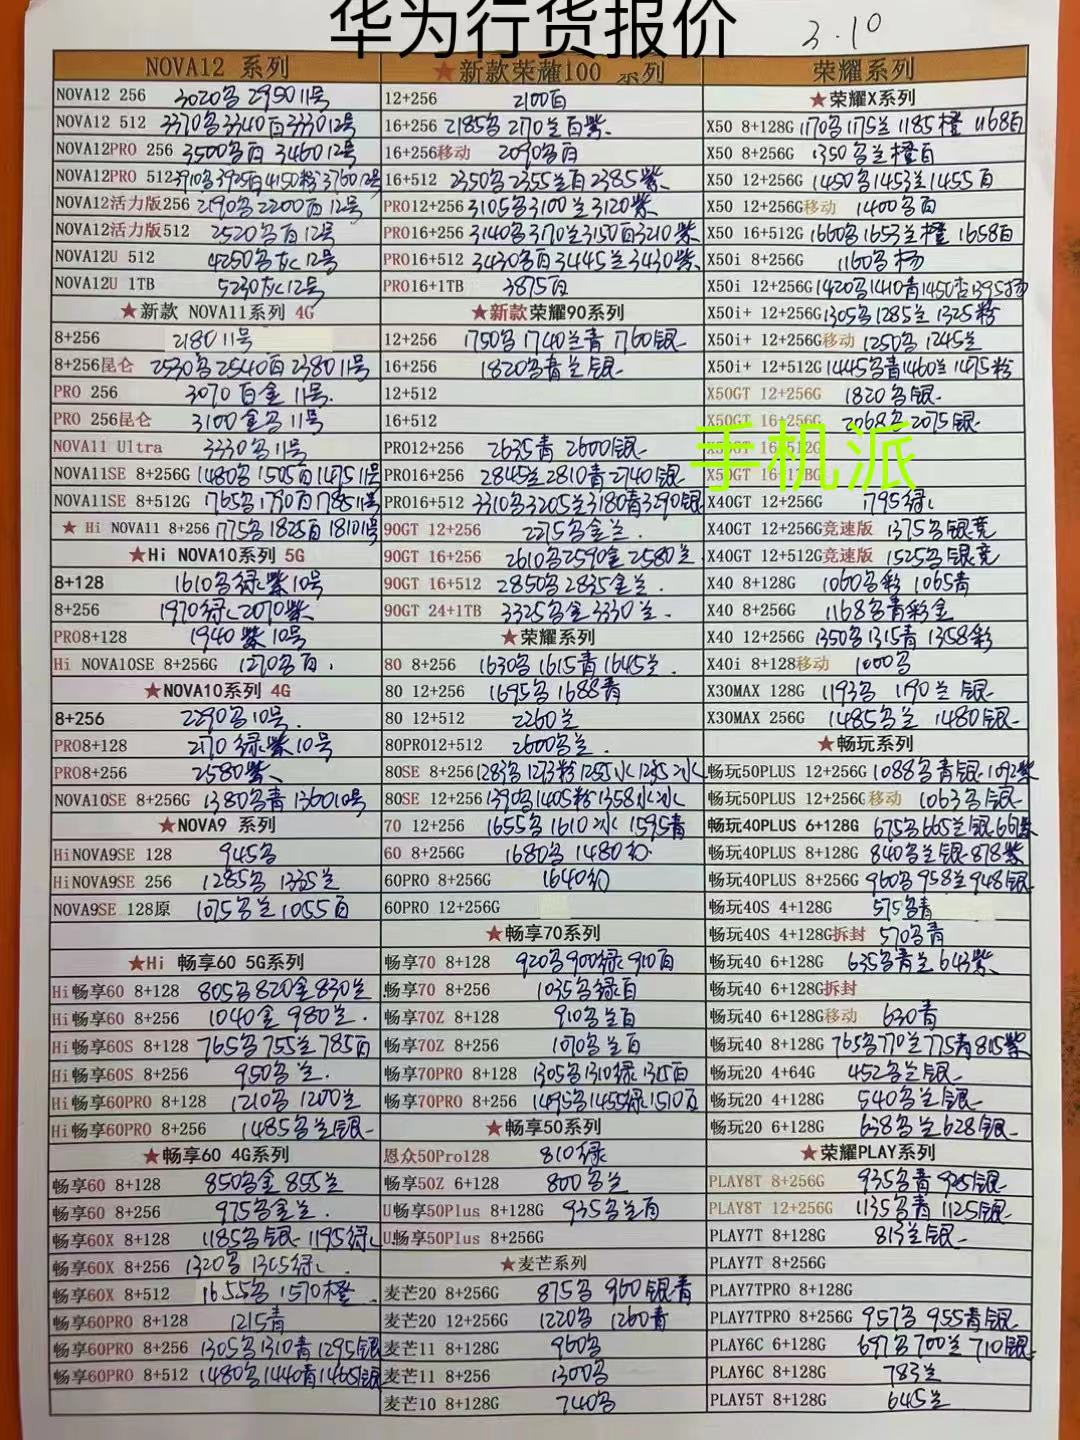 华为行货报价
3.10
NOVA12 系列
NOVA12 256 3020多 2950 11号
NOVA12 512 3370多3340百3330 12号
NOVA12PRO 256 3500多百 3460 12号
NOVA12PRO 512 3910多3925百4150粉3760 12号
NOVA12活力版256 2190多2200百12号
NOVA12活力版512 2520多百12号
NOVA12U 512 4250多灰12号
NOVA12U 1TB 5230灰12号
★新款 NOVA11系列 4G
8+256 2180 11号
8+256昆仑 2530多2540百2380 11号
PRO 256 3070百金 11号.
PRO 256昆仑 3100金多 11号
NOVA11 Ultra 3330多11号
NOVA11SE 8+256G 1480多1505百1475 11号
NOVA11SE 8+512G 1765多1790百1785 11号
★ Hi NOVA11 8+256 1775多1825百1810 11号
★Hi NOVA10系列 5G
8+128 1610多绿紫10号
8+256 1970绿2070紫
PRO8+128 1940紫10号
Hi NOVA10SE 8+256G 1270多百.
★NOVA10系列 4G
8+256 2290多10号.
PRO8+128 2170绿紫10号
PRO8+256 2580紫
NOVA10SE 8+256G 1380多青1360 10号
★NOVA9 系列
HiNOVA9SE 128 945多
HiNOVA9SE 256 1285多 1335兰
NOVA9SE 128原 1075多兰1055百
★Hi 畅享60 5G系列
Hi畅享60 8+128 805多820金830兰
Hi畅享60 8+256 1040金 980兰.
Hi畅享60S 8+128 765多755兰785百
Hi畅享60S 8+256 950多兰.
Hi畅享60PRO 8+128 1210多1200兰
Hi畅享60PRO 8+256 1485多兰银
★畅享60 4G系列
畅享60 8+128 850多金855兰
畅享60 8+256 975多金兰.
畅享60X 8+128 1185多银1195绿
畅享60X 8+256 1320多 1305绿.
畅享60X 8+512 1655多1570橙
畅享60PRO 8+128 1215青
畅享60PRO 8+256 1305多1310青1295银
畅享60PRO 8+512 1480多1440青1465银
★新款荣耀100 系列
12+256 2100百
16+256 2185多2170兰百紫
16+256移动 2090多百
16+512 2350多2355兰百2385紫
PRO12+256 3105多3100兰3120紫
PRO16+256 3140多3170兰3150百3210紫
PRO16+512 3430多百3445兰3430紫
PRO16+1TB 3875百
★新款荣耀90系列
12+256 1750多1740兰青1760银
16+256 1820多青兰银
12+512
16+512
PRO12+256 2635青 2600银
PRO16+256 2845兰2810青2740银
PRO16+512 3310多3205兰3180青3290银
90GT 12+256 2275多金兰.
90GT 16+256 2610多2590金2580兰
90GT 16+512 2850多2835金兰
90GT 24+1TB 3325多金3330兰.
★荣耀系列
80 8+256 1630多1615青1645兰.
80 12+256 1695多1688青
80 12+512 2260兰
80PRO12+512 2600多兰.
80SE 8+256 1283多1273粉1255冰
80SE 12+256 1390多1405粉1358冰
70 12+256 1655多1610冰 1595青
60 8+256G 1680多 1480幻
60PRO 8+256G 1640幻
60PRO 12+256G
★畅享70系列
畅享70 8+128 920多900绿910百
畅享70 8+256 1035多绿百
畅享70Z 8+128 910多兰百
畅享70Z 8+256 1070多兰百
畅享70PRO 8+128 1305多1310绿1315百
畅享70PRO 8+256 1495多1455绿1510百
★畅享50系列
恩众50Pro128 810绿
畅享50Z 6+128 800多兰
U畅享50Plus 8+128G 935多兰百
U畅享50Plus 8+256G
★麦芒系列
麦芒20 8+256G 875多 960银青
麦芒20 12+256G 1220多 1260青
麦芒11 8+128G 960多
麦芒11 8+256 1300多
麦芒10 8+128G 740多
荣耀系列
★荣耀X系列
X50 8+128G 1170多1175兰1185橙1168百
X50 8+256G 1350多兰橙百
X50 12+256G 1450多1453兰1455百
X50 12+256G移动 1400多百
X50 16+512G 1660多1653兰橙 1658百
X50i 8+256G 1160多杨
X50i 12+256G 1420多1410青1450杏1395杨
X50i+ 12+256G 1305多1285兰1325粉
X50i+ 12+256G移动 1250多1245兰
X50i+ 12+512G 1445多青1460兰1475粉
X50GT 12+256G 1820多银
X50GT 16+256G 2068多2075银
手机派
X40GT 12+256G 1795绿
X40GT 12+256G竞速版 1375多银竞
X40GT 12+512G竞速版 1525多银竞
X40 8+128G 1060多彩1065青
X40 8+256G 1168多青彩金
X40 12+256G 1350多1315青1358彩
X40i 8+128移动 1000多
X30MAX 128G 1193多 1190兰银
X30MAX 256G 1485多兰 1480银
★畅玩系列
畅玩50PLUS 12+256G 1088多青银1092紫
畅玩50PLUS 12+256G移动 1063多银
畅玩40PLUS 6+128G 675多665兰银661紫
畅玩40PLUS 8+128G 840多兰银878紫
畅玩40PLUS 8+256G 960多958兰948银
畅玩40S 4+128G 575多青
畅玩40S 4+128G拆封 570多青
畅玩40 6+128G 635多青兰643紫
畅玩40 6+128G拆封
畅玩40 6+128G移动 630青
畅玩40 8+128G 765多770兰775青815紫
畅玩20 4+64G 452多兰银
畅玩20 4+128G 540多兰银
畅玩20 6+128G 638多兰628银
★荣耀PLAY系列
PLAY8T 8+256G 935多青925银
PLAY8T 12+256G 1135多青1125银
PLAY7T 8+128G 813兰银
PLAY7T 8+256G
PLAY7TPRO 8+128G
PLAY7TPRO 8+256G 957多 955青银
PLAY6C 6+128G 697多700兰710银
PLAY6C 8+128G 783兰
PLAY5T 8+128G 645兰